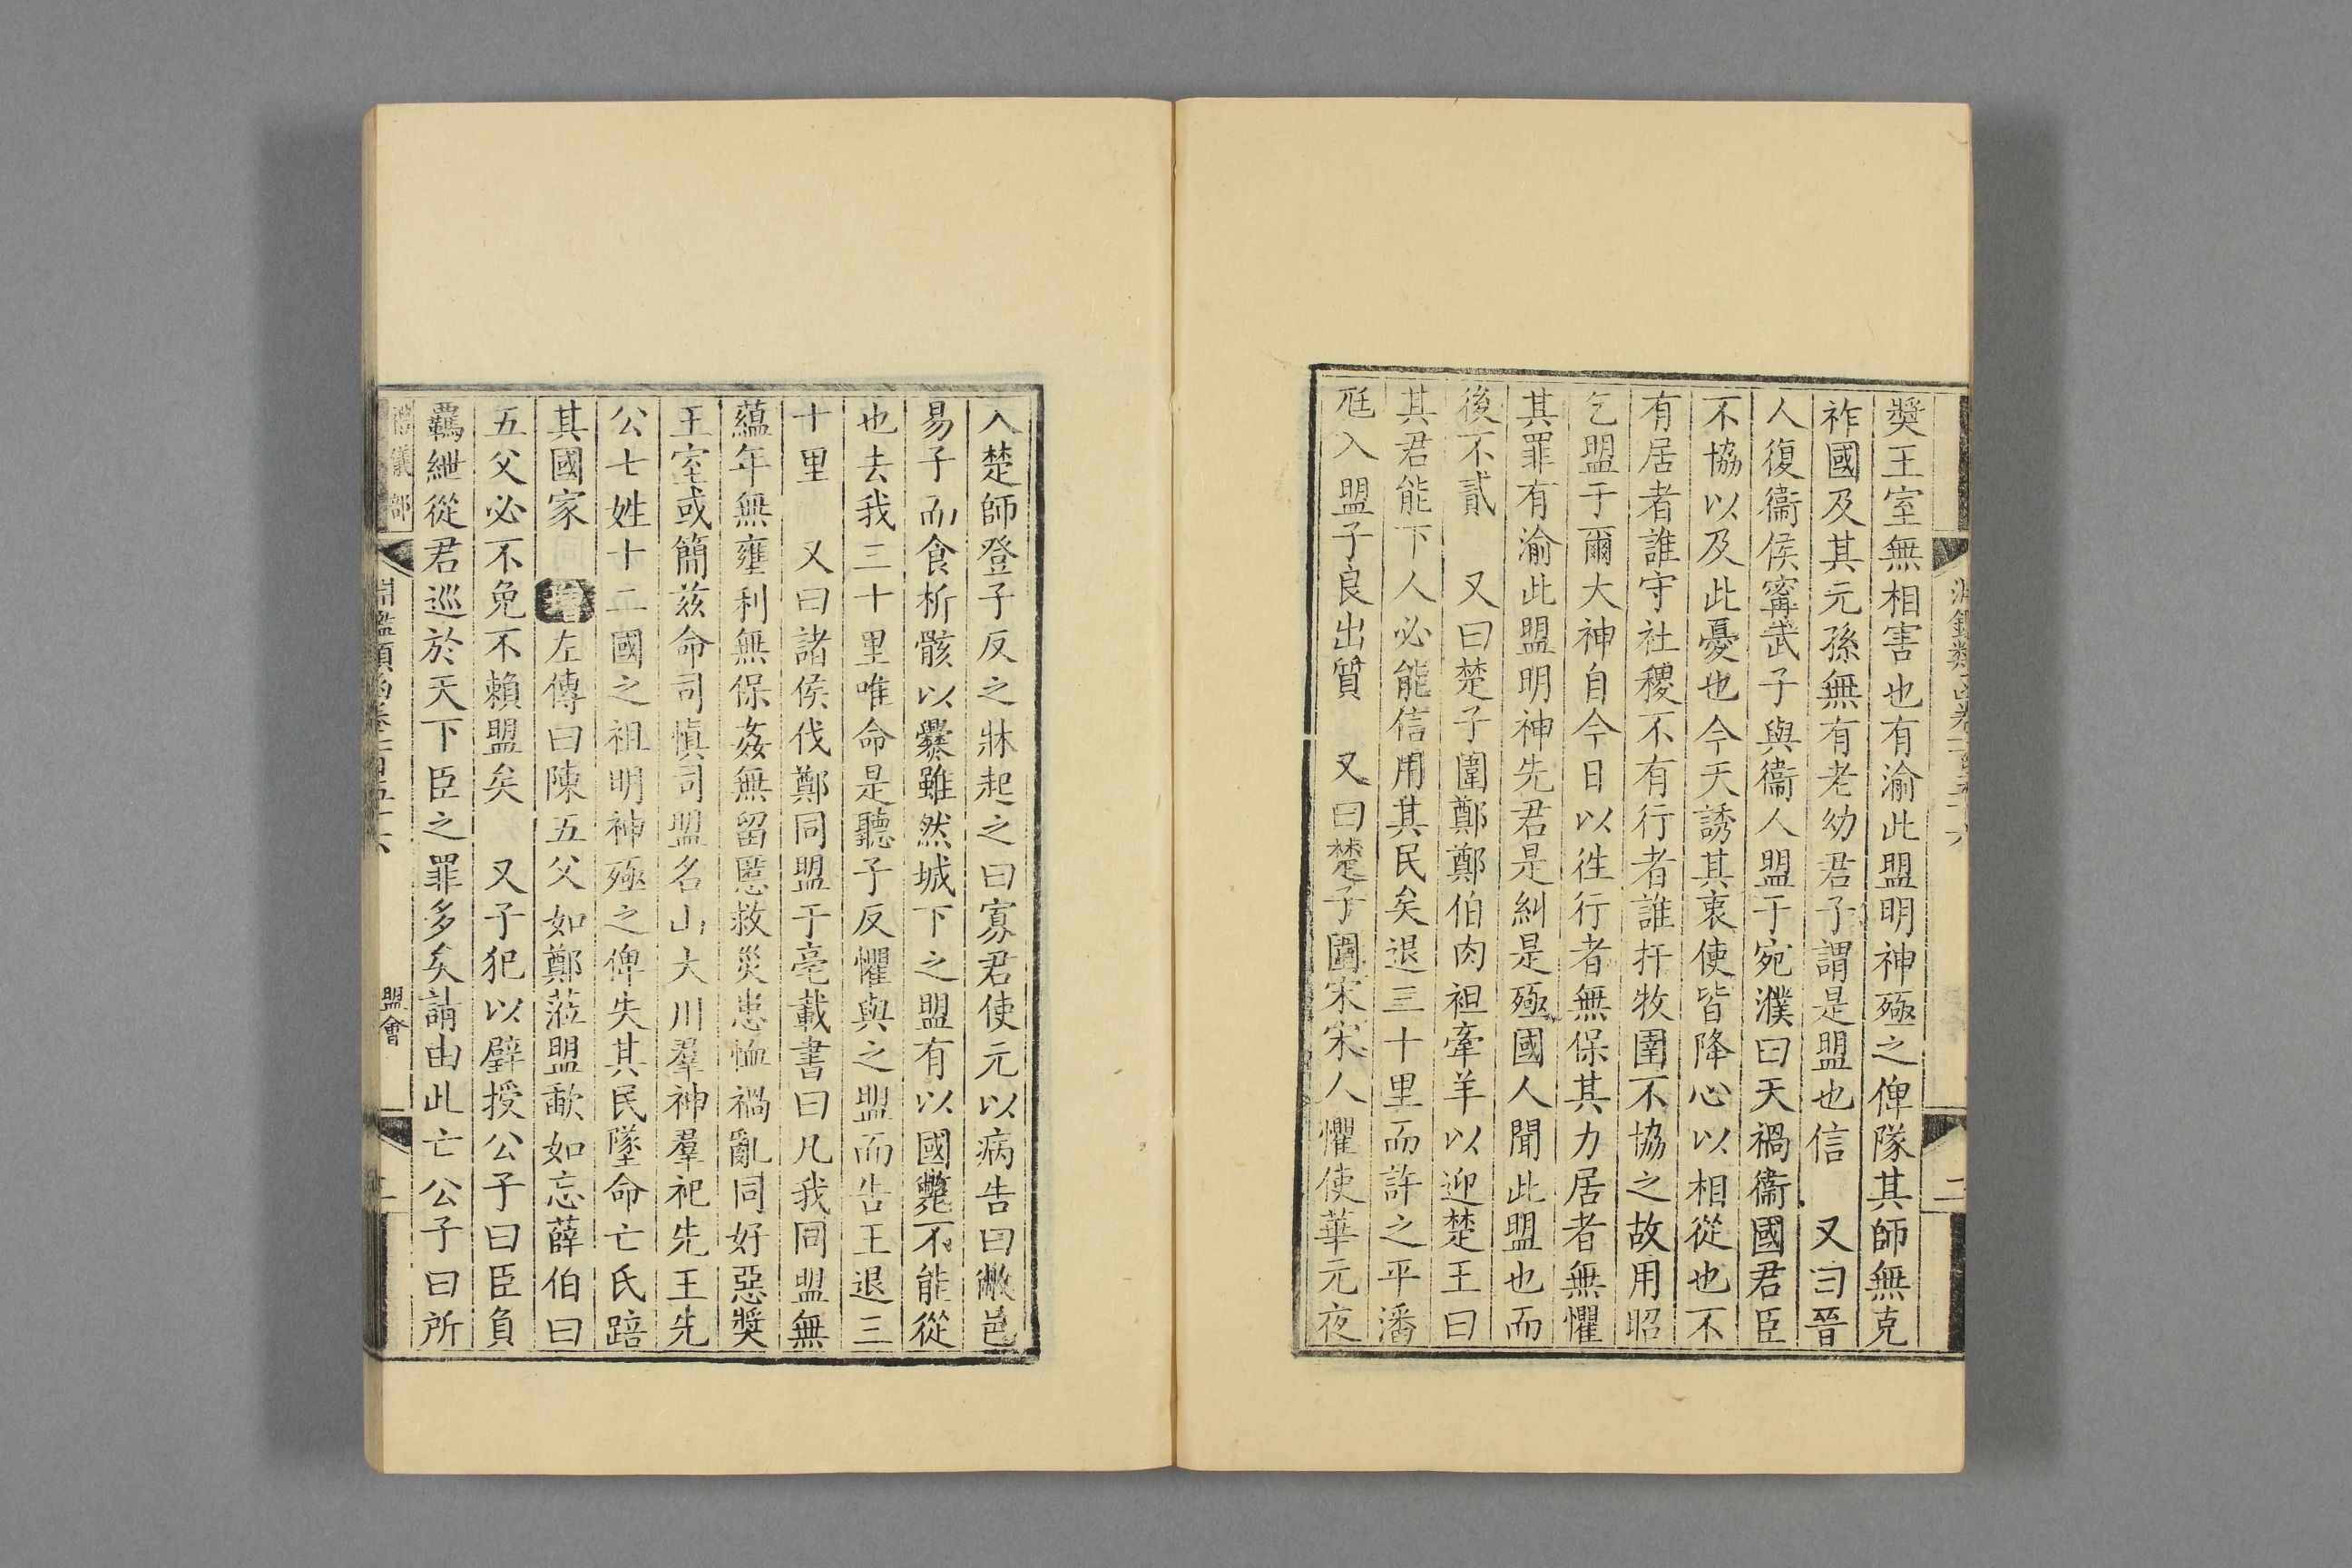 獎王室無相害也有渝此盟明神殛之俾隊其師無克
祚國及其元孫無有老幼君子謂是盟也信　又曰晉
人復衞侯甯武子與衞人盟于宛濮曰天禍衞國君臣
不協以及此憂也今天誘其衷使皆降心以相從也不
有居者誰守社稷不有行者誰扞牧圉不協之故用昭
乞盟于爾大神自今日以徃行者無保其力居者無懼
其罪有渝此盟明神先君是糾是殛國人聞此盟也而
後不貳　又曰楚子圍鄭鄭伯肉袒牽羊以迎楚王曰
其君能下人必能信用其民矣退三十里而許之平潘
尫入盟子良出質　又曰楚子圍宋宋人懼使華元夜
入楚師登子反之牀起之曰寡君使元以病告曰敝邑
易子而食析骸以爨雖然城下之盟有以國斃不能從
也去我三十里唯命是聽子反懼與之盟而告王退三
十里　又曰諸侯伐鄭同盟于亳載書曰凡我同盟無
蘊年無壅利無保姦無留慝救災患恤禍亂同好惡獎
王室或簡兹命司慎司盟名山大川羣神羣祀先王先
公七姓十二國之祖明神殛之俾失其民墜命亡氏踣
其國家　左傳曰陳五父如鄭蒞盟歃如忘薛伯曰
五父必不免不賴盟矣　又子犯以璧授公子曰臣負
羈紲從君巡於天下臣之罪多矣請由此亡公子曰所
禮儀部　淵鑑類函卷一百五十六　盟會　二